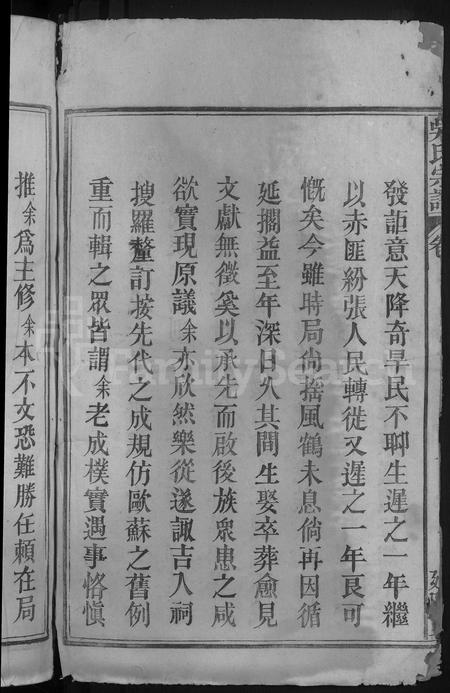 吳氏宗譜
卷
發詎意天降奇旱民不聊生遲之一年繼
以赤匪紛張人民轉徙又遲之一年良可
慨矣今雖時局尚捨風鶴未息倘再因循
延擱益至年深日久其間生娶卒葬愈見
文獻無徵奚以承先而啟後族衆患之咸
欲實現原議余亦欣然樂從遂諏吉入祠
搜羅釐訂按先代之成規仿歐蘇之舊例
重而輯之眾皆謂余老成樸實遇事恪慎
推余爲主修余本不文恐難勝任賴在局
FamilySearch